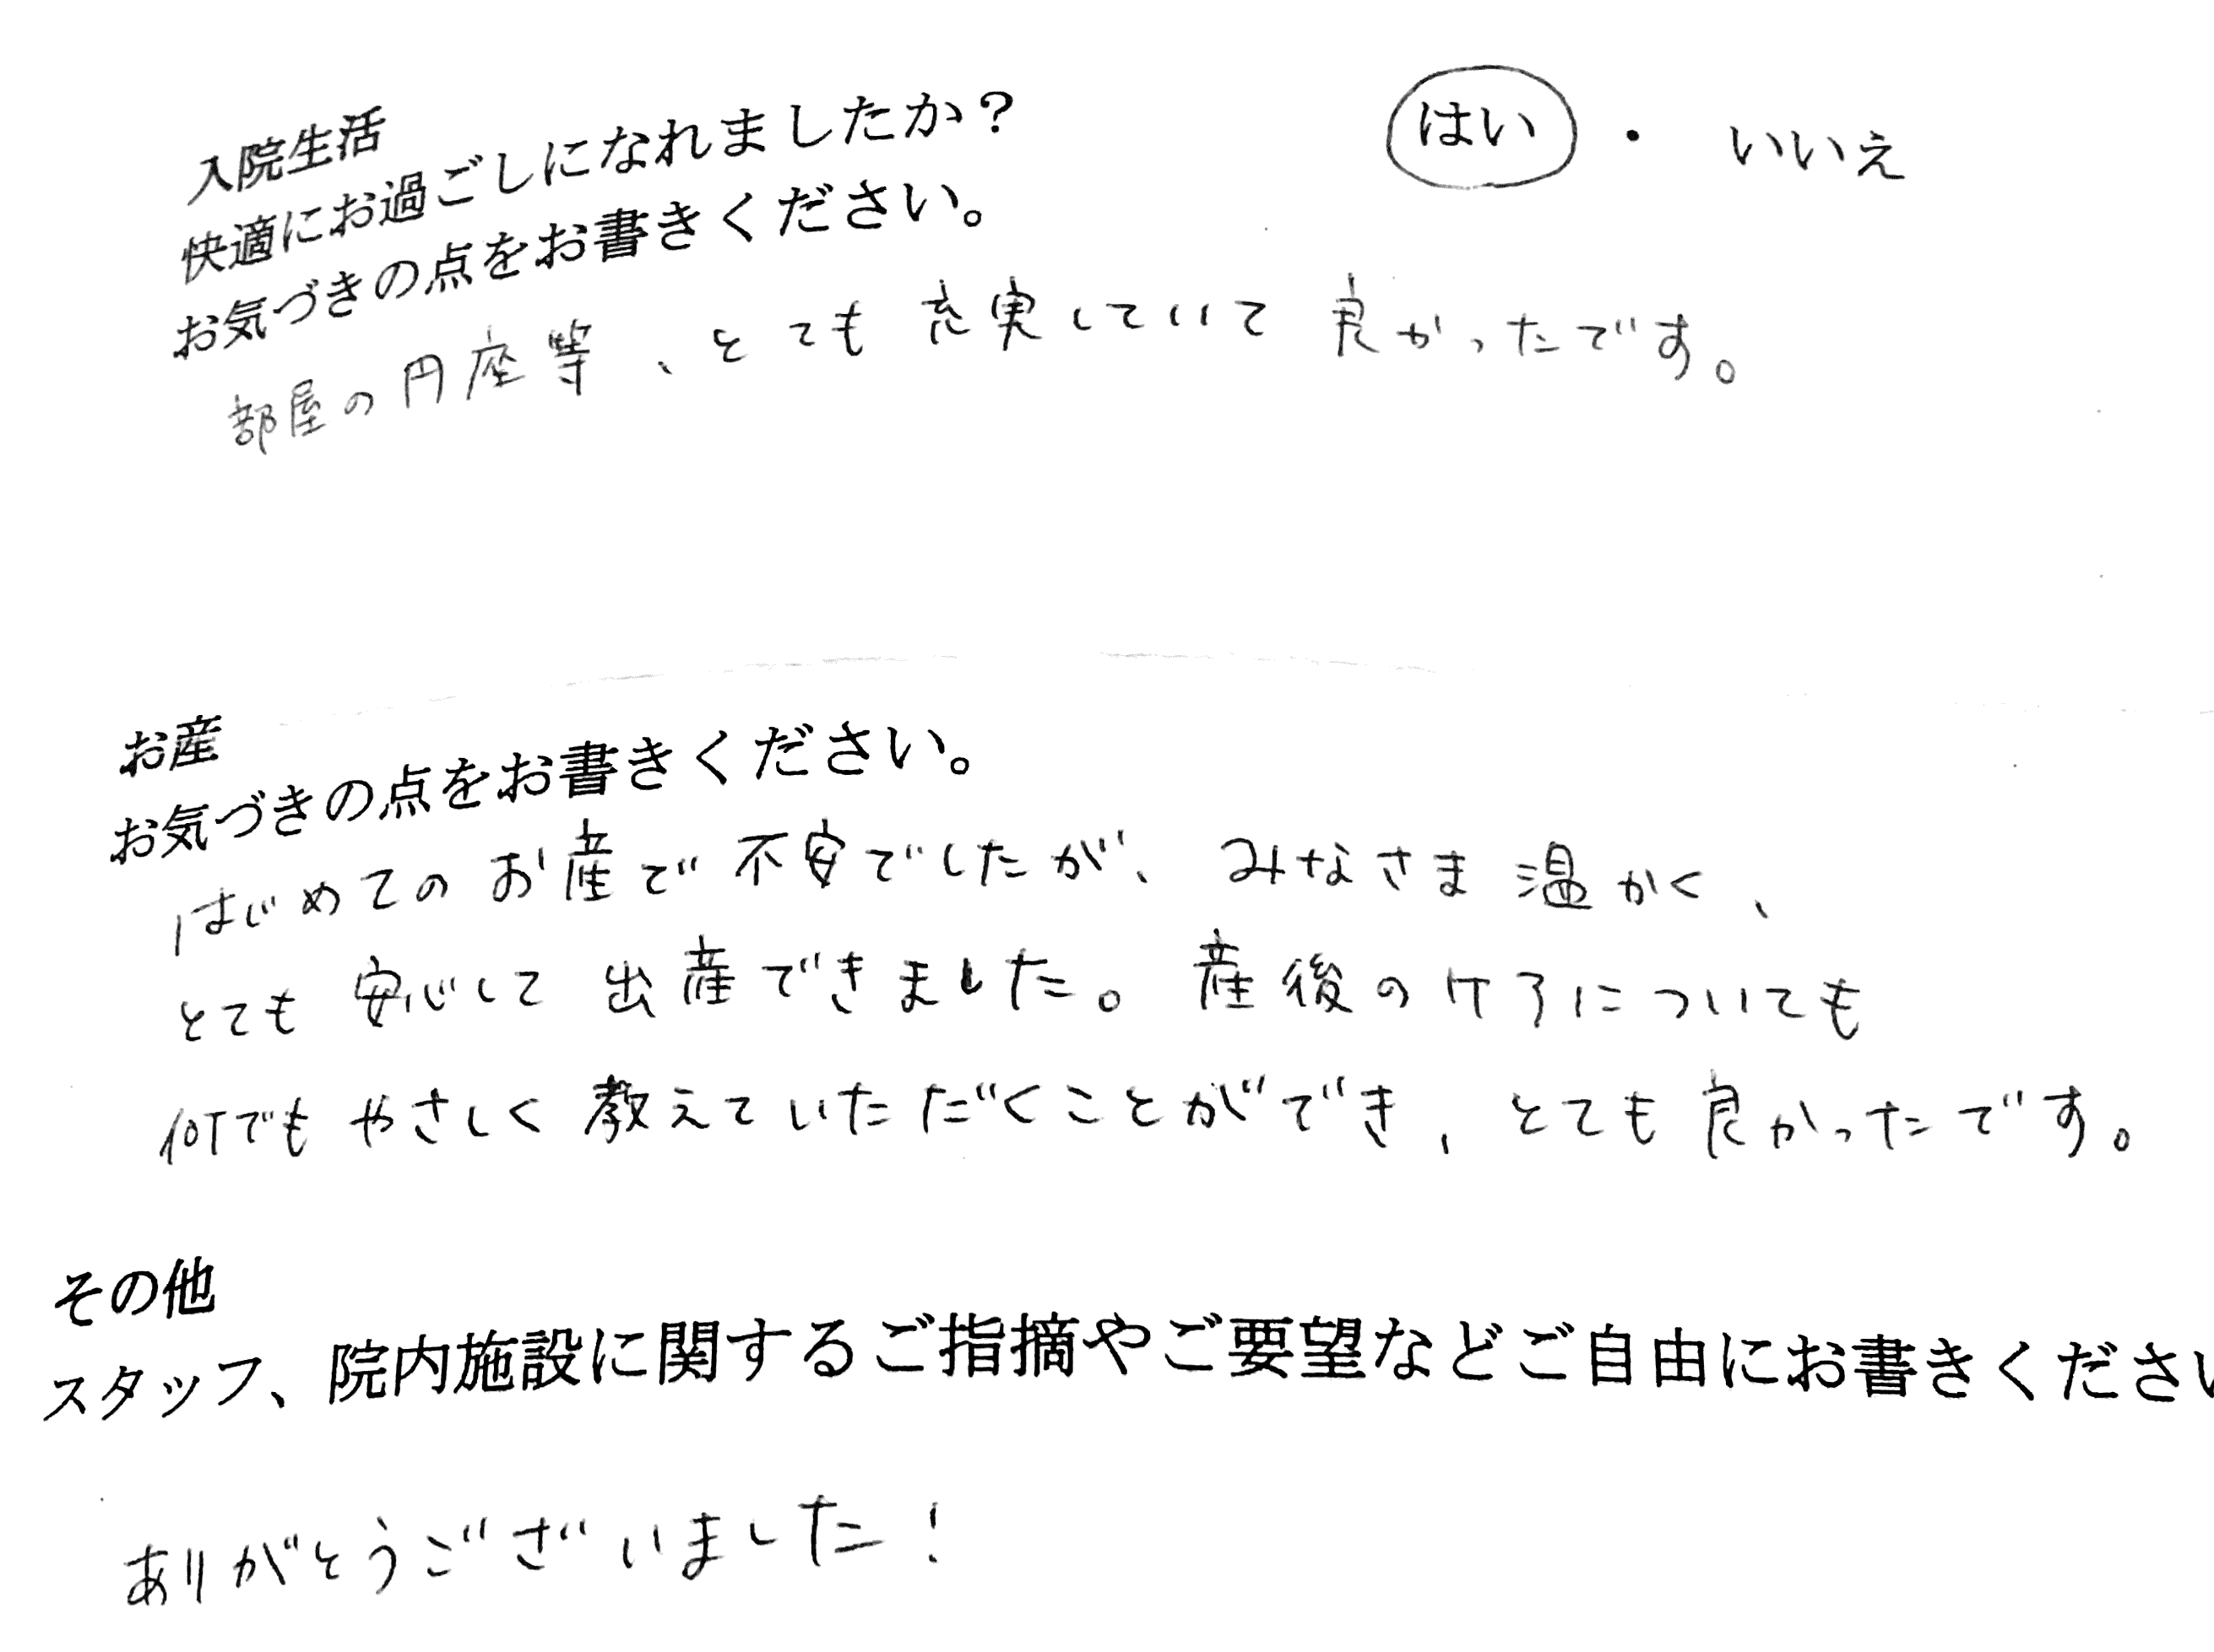 入院生活
快適にお過ごしになれましたか? はい ・ いいえ
お気づきの点をお書きください。
部屋の円座等、とても充実していて良かったです。
お産
お気づきの点をお書きください。
はじめてのお産で不安でしたが、みなさま温かく、
とても安心して出産できました。産後のケアについても
何でもやさしく教えていただくことができ、とても良かったです。
その他
スタッフ、院内施設に関するご指摘やご要望などご自由にお書きください
ありがとうございました!